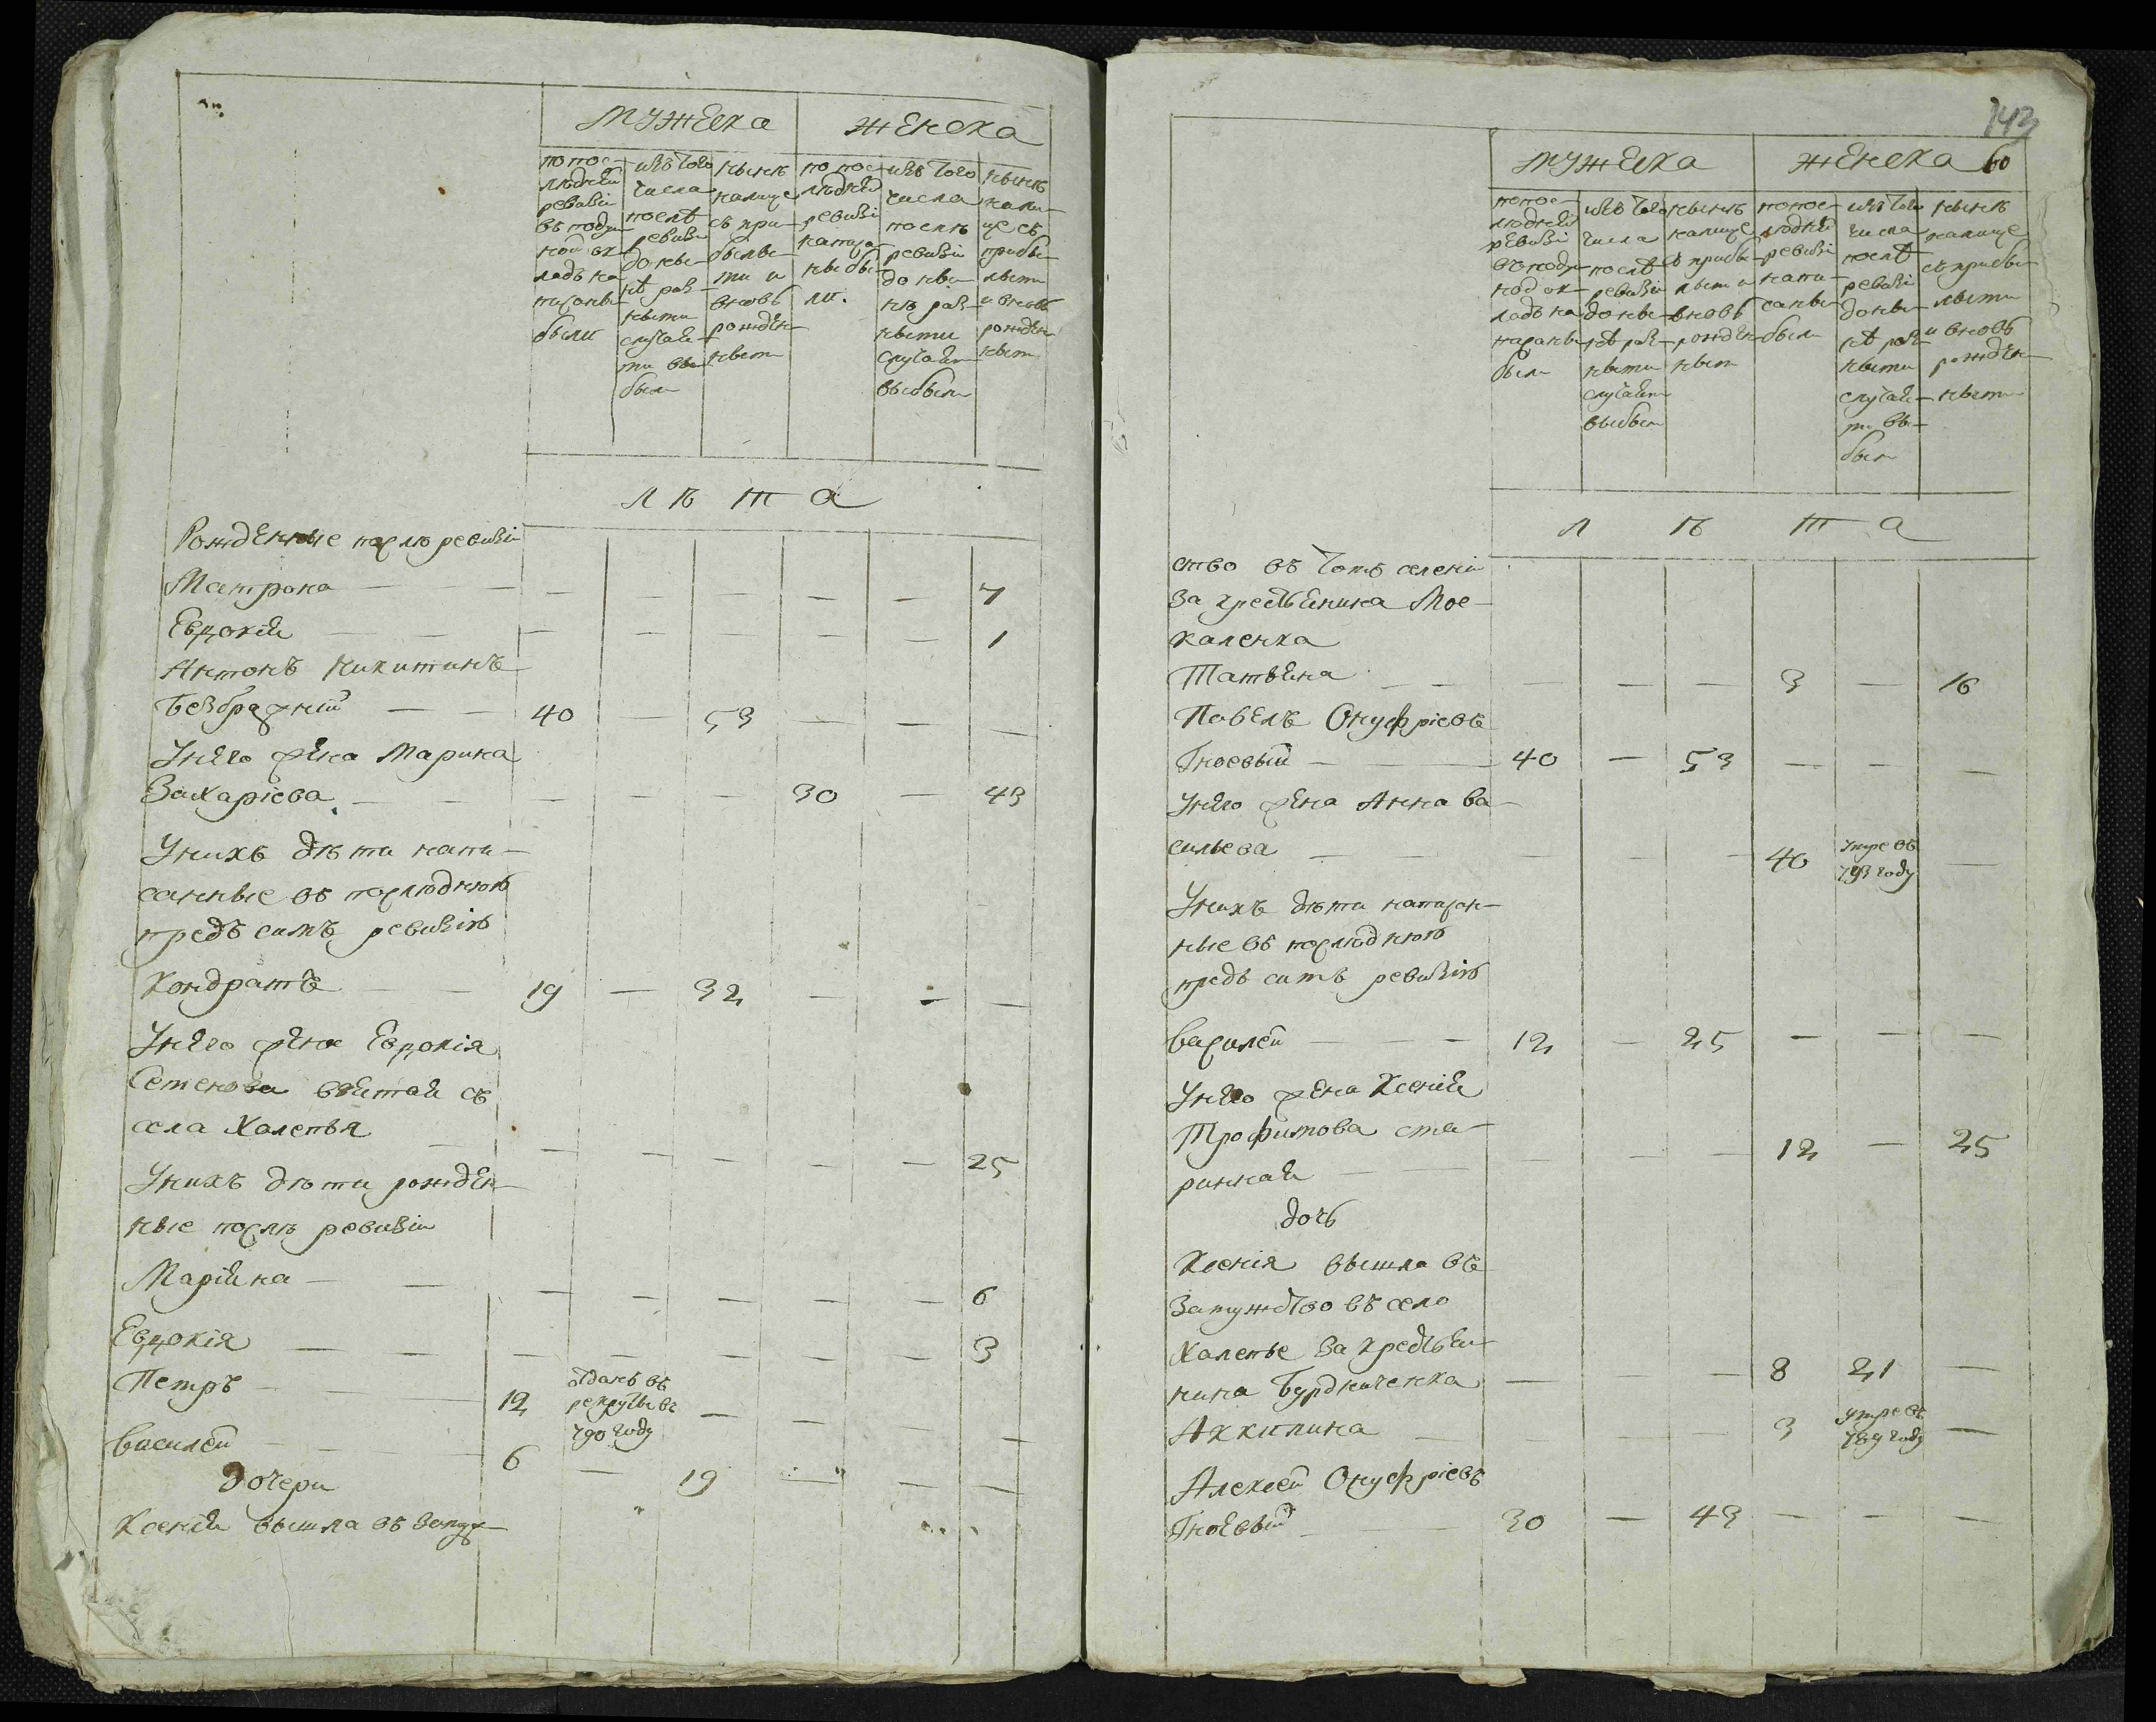 мужеска женска
по пос-
лѣдней
ревизіи
въ поду-
ной ок-
ладъ на
писаны
были
изъ того
числа
послѣ
ревизіи
до ны-
нѣ раз-
ными
случаи-
ми вы
были
нынѣ
налице
съ при-
былы-
ми и
вновь
рожден-
ными
по пос-
лѣдней
ревизіи
написа-
ны бы-
ли.
изъ того
числа
послѣ
ревизіи
до ны-
нѣ раз-
ными
случаими
выбыли
нынѣ
нали-
це съ
прибы-
лыми
и вновь
рожден-
ными
лѣта
Рожденные послѣ ревизіи
Матрона — — — — — — 7
Евдокіи — — — — — — 1
Антонъ Никитинъ
Безбражній — 40 — 53 — — —
У него жена Марина
Захаріева — — — — 30 — 43
У нихъ дѣти напи-
санные въ послюднюю
предъ симъ ревизію
Кондратъ — 19 — 32 — — —
У него жена Евдокія
Семенова взятаи съ
села Халепья — — — — — — 25
У нихъ дѣти рожден-
ные послѣ ревизіи
Маріина — — — — — — 6
Евдокія — — — — — — 3
Петръ — 12 отданъ въ рекруты въ 790 году — — — —
Василей — 6 — 19 — — —
дочери
Ксеніи вышла въ замуж-
143
мужеска женска 60
по пос-
людней
ревизіи
въ поду-
ной ок-
ладъ на
писаны
были
изъ того
числа
послѣ
ревизіи
до ны-
нѣ раз-
ными
случаими
выбыли
нынѣ
налице
съ прибы-
лыми и
вновь
рожден-
ными
по пос-
людней
ревизіи
напи-
саны
были
изъ того
числа
послѣ
ревизіи
до ны-
нѣ раз-
ными
случаи-
ми вы-
были
нынѣ
налице
съ прибы-
лыми
и вновь
рожден-
ными
лѣта
ство въ томъ селеніи
за крестьянина Мос-
каленка
Татьяна — — — — 3 — 16
Павелъ Онуфріевъ
Гноевый — 40 — 53 — — —
У него жена Анна Ва-
сильева — — — — 40 умре въ 793 году —
У нихъ дѣти написан-
ные въ послюднюю
предъ симъ ревизію
Василей — 12 — 25 — — —
У него жена Ксеніи
Трофимова ста-
риннаи — — — — 12 — 25
дочь
Ксенія вышла въ
замужство въ село
Халепье за крестьян-
нина Бурдниченка — — — 8 21 —
Аккилина — — — — 3 умре въ 789 году —
Алексей Онуфріевъ
Гноевый — 30 — 43 — — —